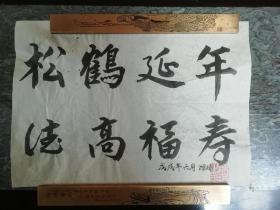 松鹤延年
德高福寿
戊戌年六月